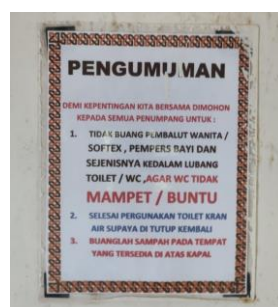 PENGUMUMAN
DEMI KEPENTINGAN KITA BERSAMA DIMOHON
KEPADA SEMUA PENUMPANG UNTUK :
1. TIDAK BUANG PEMBALUT WANITA /
SOFTEX , PEMPERS BAYI DAN
SEJENISNYA KEDALAM LUBANG
TOILET / WC ,AGAR WC TIDAK
MAMPET / BUNTU
2. SELESAI PERGUNAKAN TOILET KRAN
AIR SUPAYA DI TUTUP KEMBALI
3. BUANGLAH SAMPAH PADA TEMPAT
YANG TERSEDIA DI ATAS KAPAL